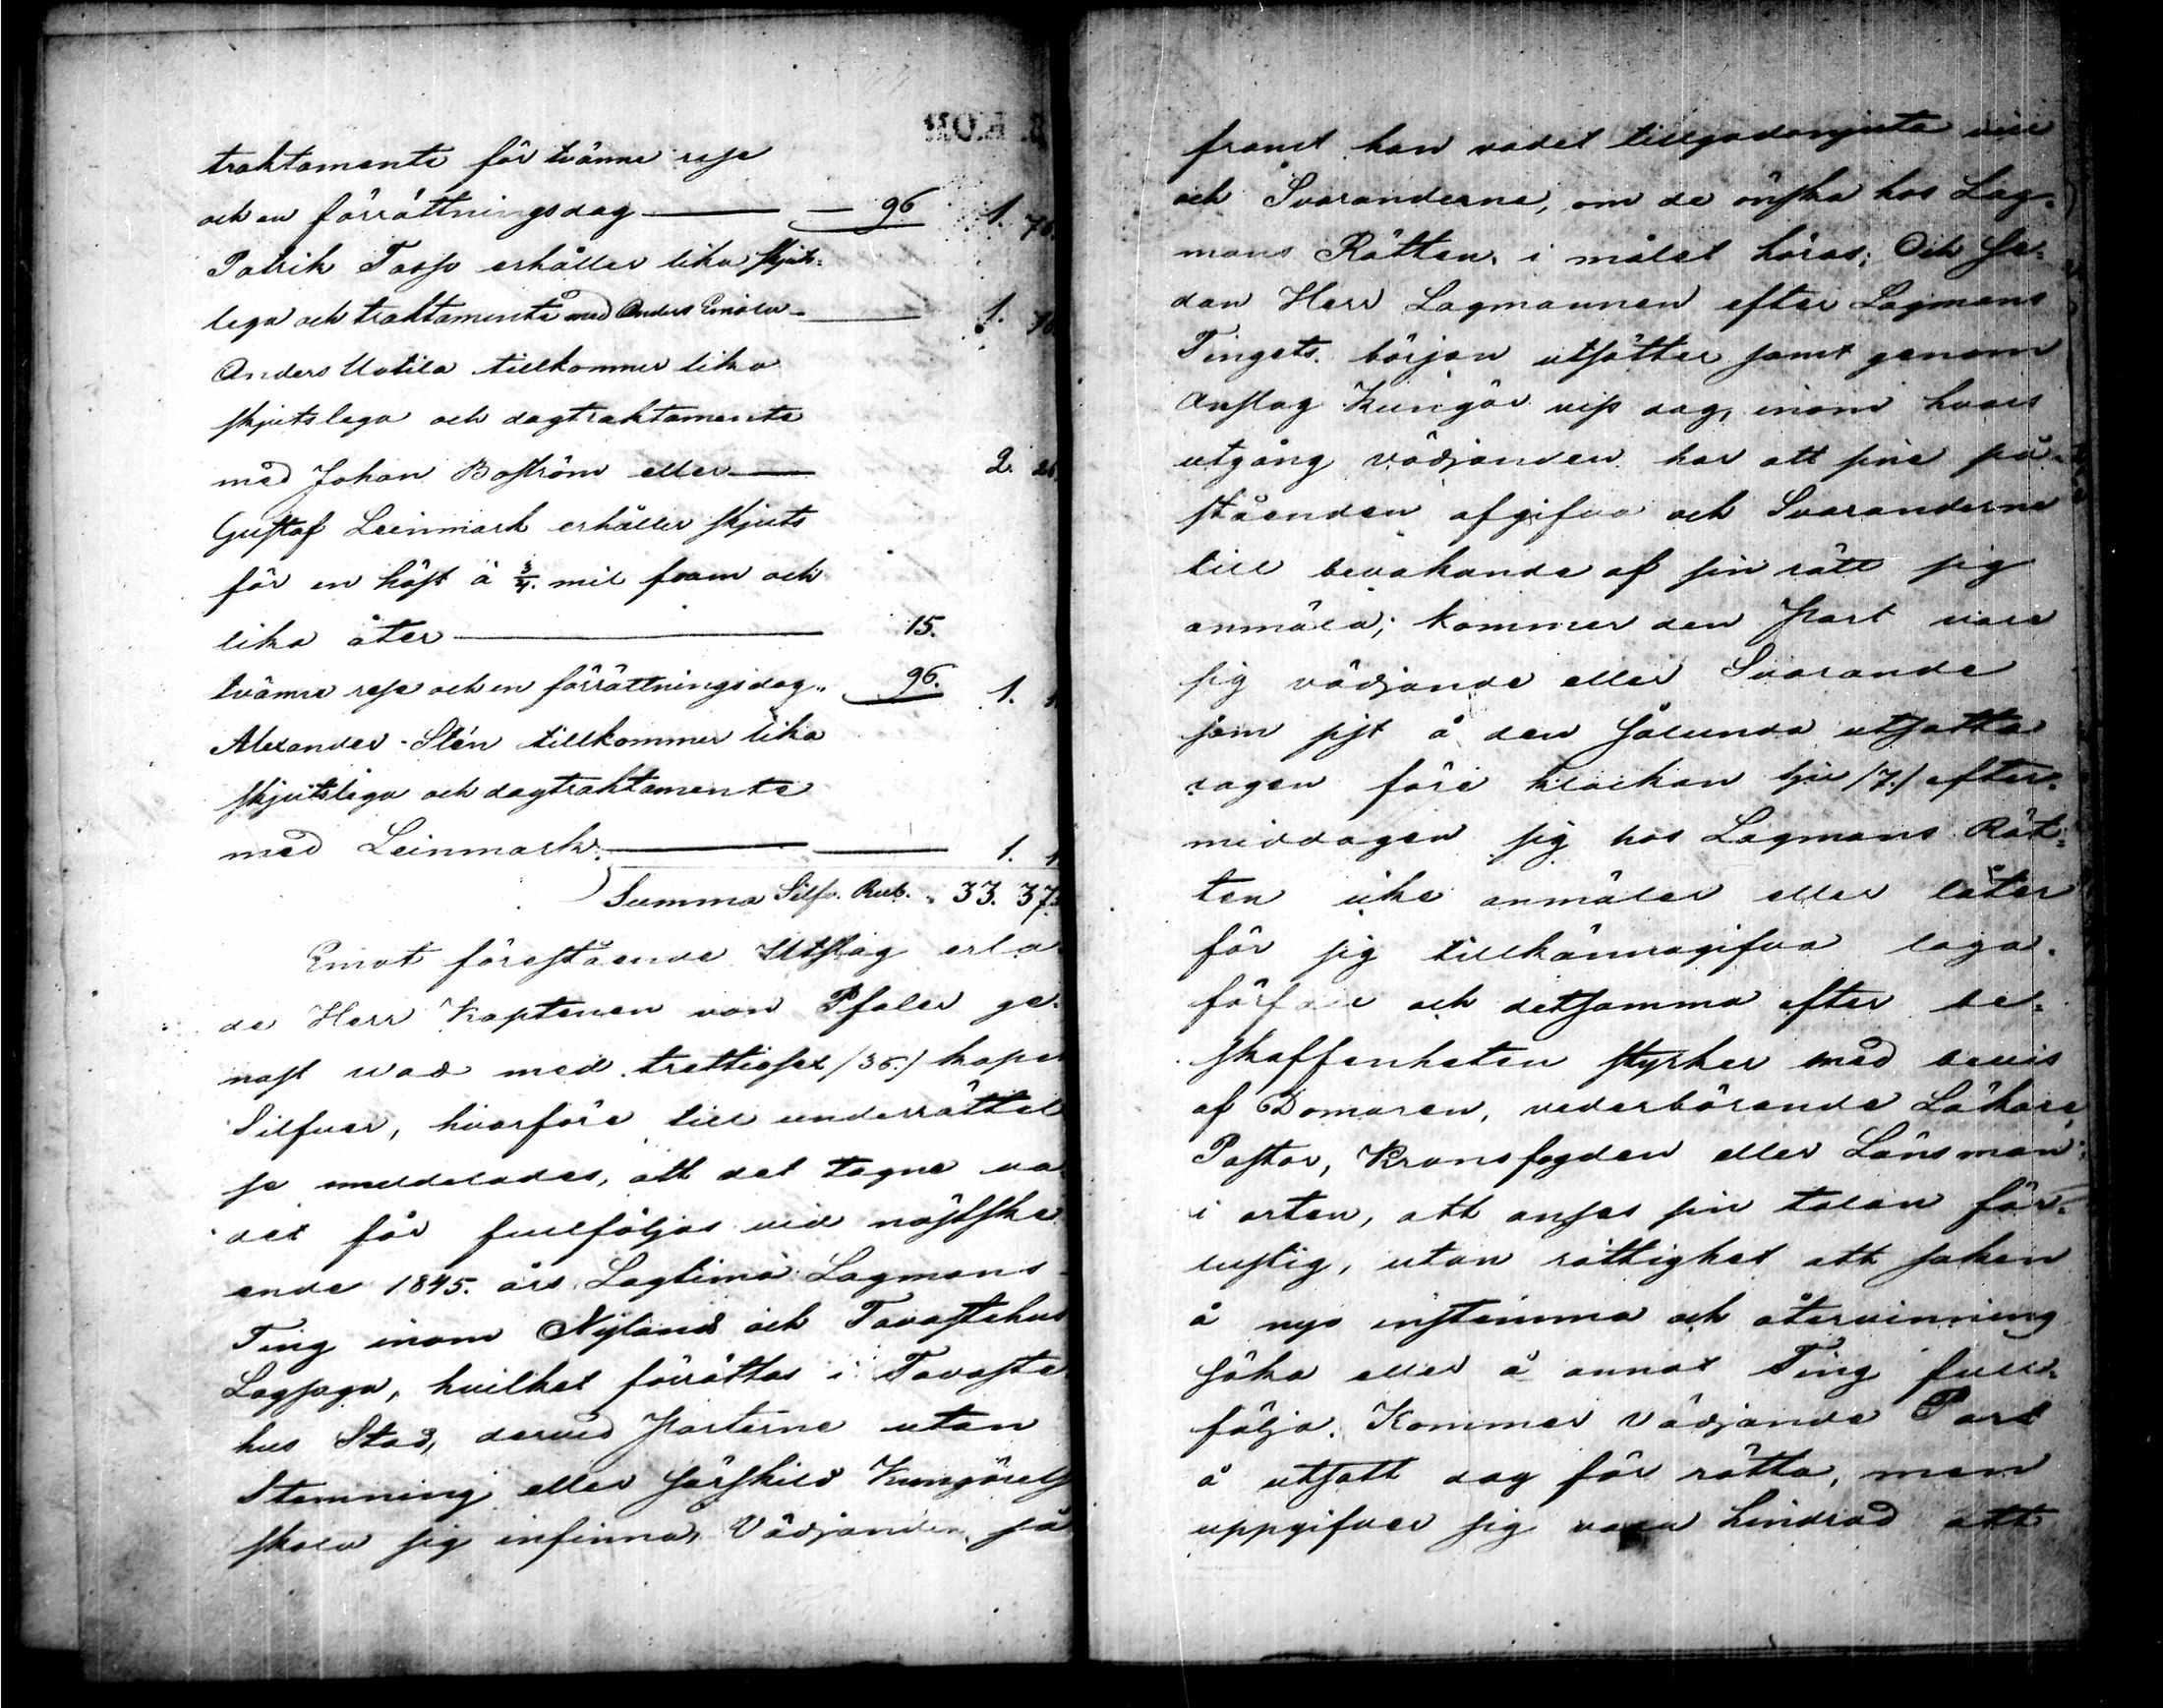 traktamente för tvänne rese
och en förrättningsdag — — 96 1. 76.
Patrik Tasp erhåller lika skjuts-
lega och traktamente med Anders Emola — 1. 76
Anders Uotila tillkommer lika
skjutslega och dagtraktamente
med Johan Boström eller — 2.
Gustaf Leinmark erhåller skjuts
för en häst à 3/4. mil fram och
lika åter — 15.
tvänne rese och en förrättningsdag „ 96. 1.
Alexander Stén tillkommer lika
skjutslega och dagtraktamente
med Leinmark. — — 1.
Summa Silfv. Rub. „ 33. 37.
Emot förestående Utslag erla
de Herr Kaptenen von Pfaler ge-
nast vad med trettiosex /36./ kope
Silfver, hvarföre till underrättel
se meddelades, att det tagne va
det får fullföljas vid nästske
ende 1845. års Lagtima Lagmans
Ting inom Nylands och Tavastehus
Lagsaga, hvilket förrättas i Tavaste
hus Stad, dervid Parterne utan
Stemning eller särskild Kungörels
skola sig infinna, Vädjanden så
framt han vadet tillgodonjuta vill
och Svaranderne, om de önska hos Lag-
mans Rätten i målet höras; Och se-
dan Herr Lagmannen efter Lagmans
Tingets början utsätter samt genom
Anslag Kungör viss dag, inom hvars
utgång vädjanden har att sine på-
ståenden afgifva och Svaranderne
till bevakande af sin rätt sig
anmäla; kommer den Part vare
sig vädjande eller Svarande
som sist å den sålunda utsatta
dagen före klockan sju /7./ efter-
middagen sig hos Lagmans Rät-
ten icke anmäler eller låter
för sig tillkännagifva laga
förfall och detsamma efter be-
skaffenheten styrker med bevis
af Domaren, vederbörande Läkare,
Pastor, Kronofogden eller Länsman
i orten, att anses sin talan för-
lustig, utan rättighet att saken
å nyo instämma och återvinning
söka eller å annat Ting full-
följa. Kommer Vädjande Part
å utsatt dag för rätta, men
uppgifver sig vara hindrad att